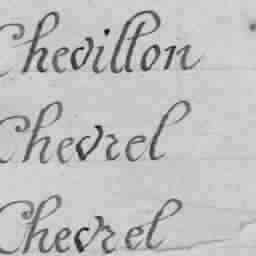 Chevillon
Chevrel
Chevrel